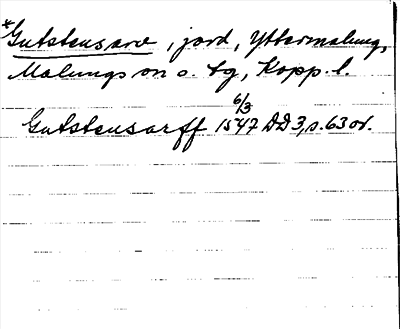 *Gutstensarv, jord, Yttermalung,
Malungs sn o. tg, Kopp. l.
Gutstensarff 6/3 1547 DD 3, s. 63 or.